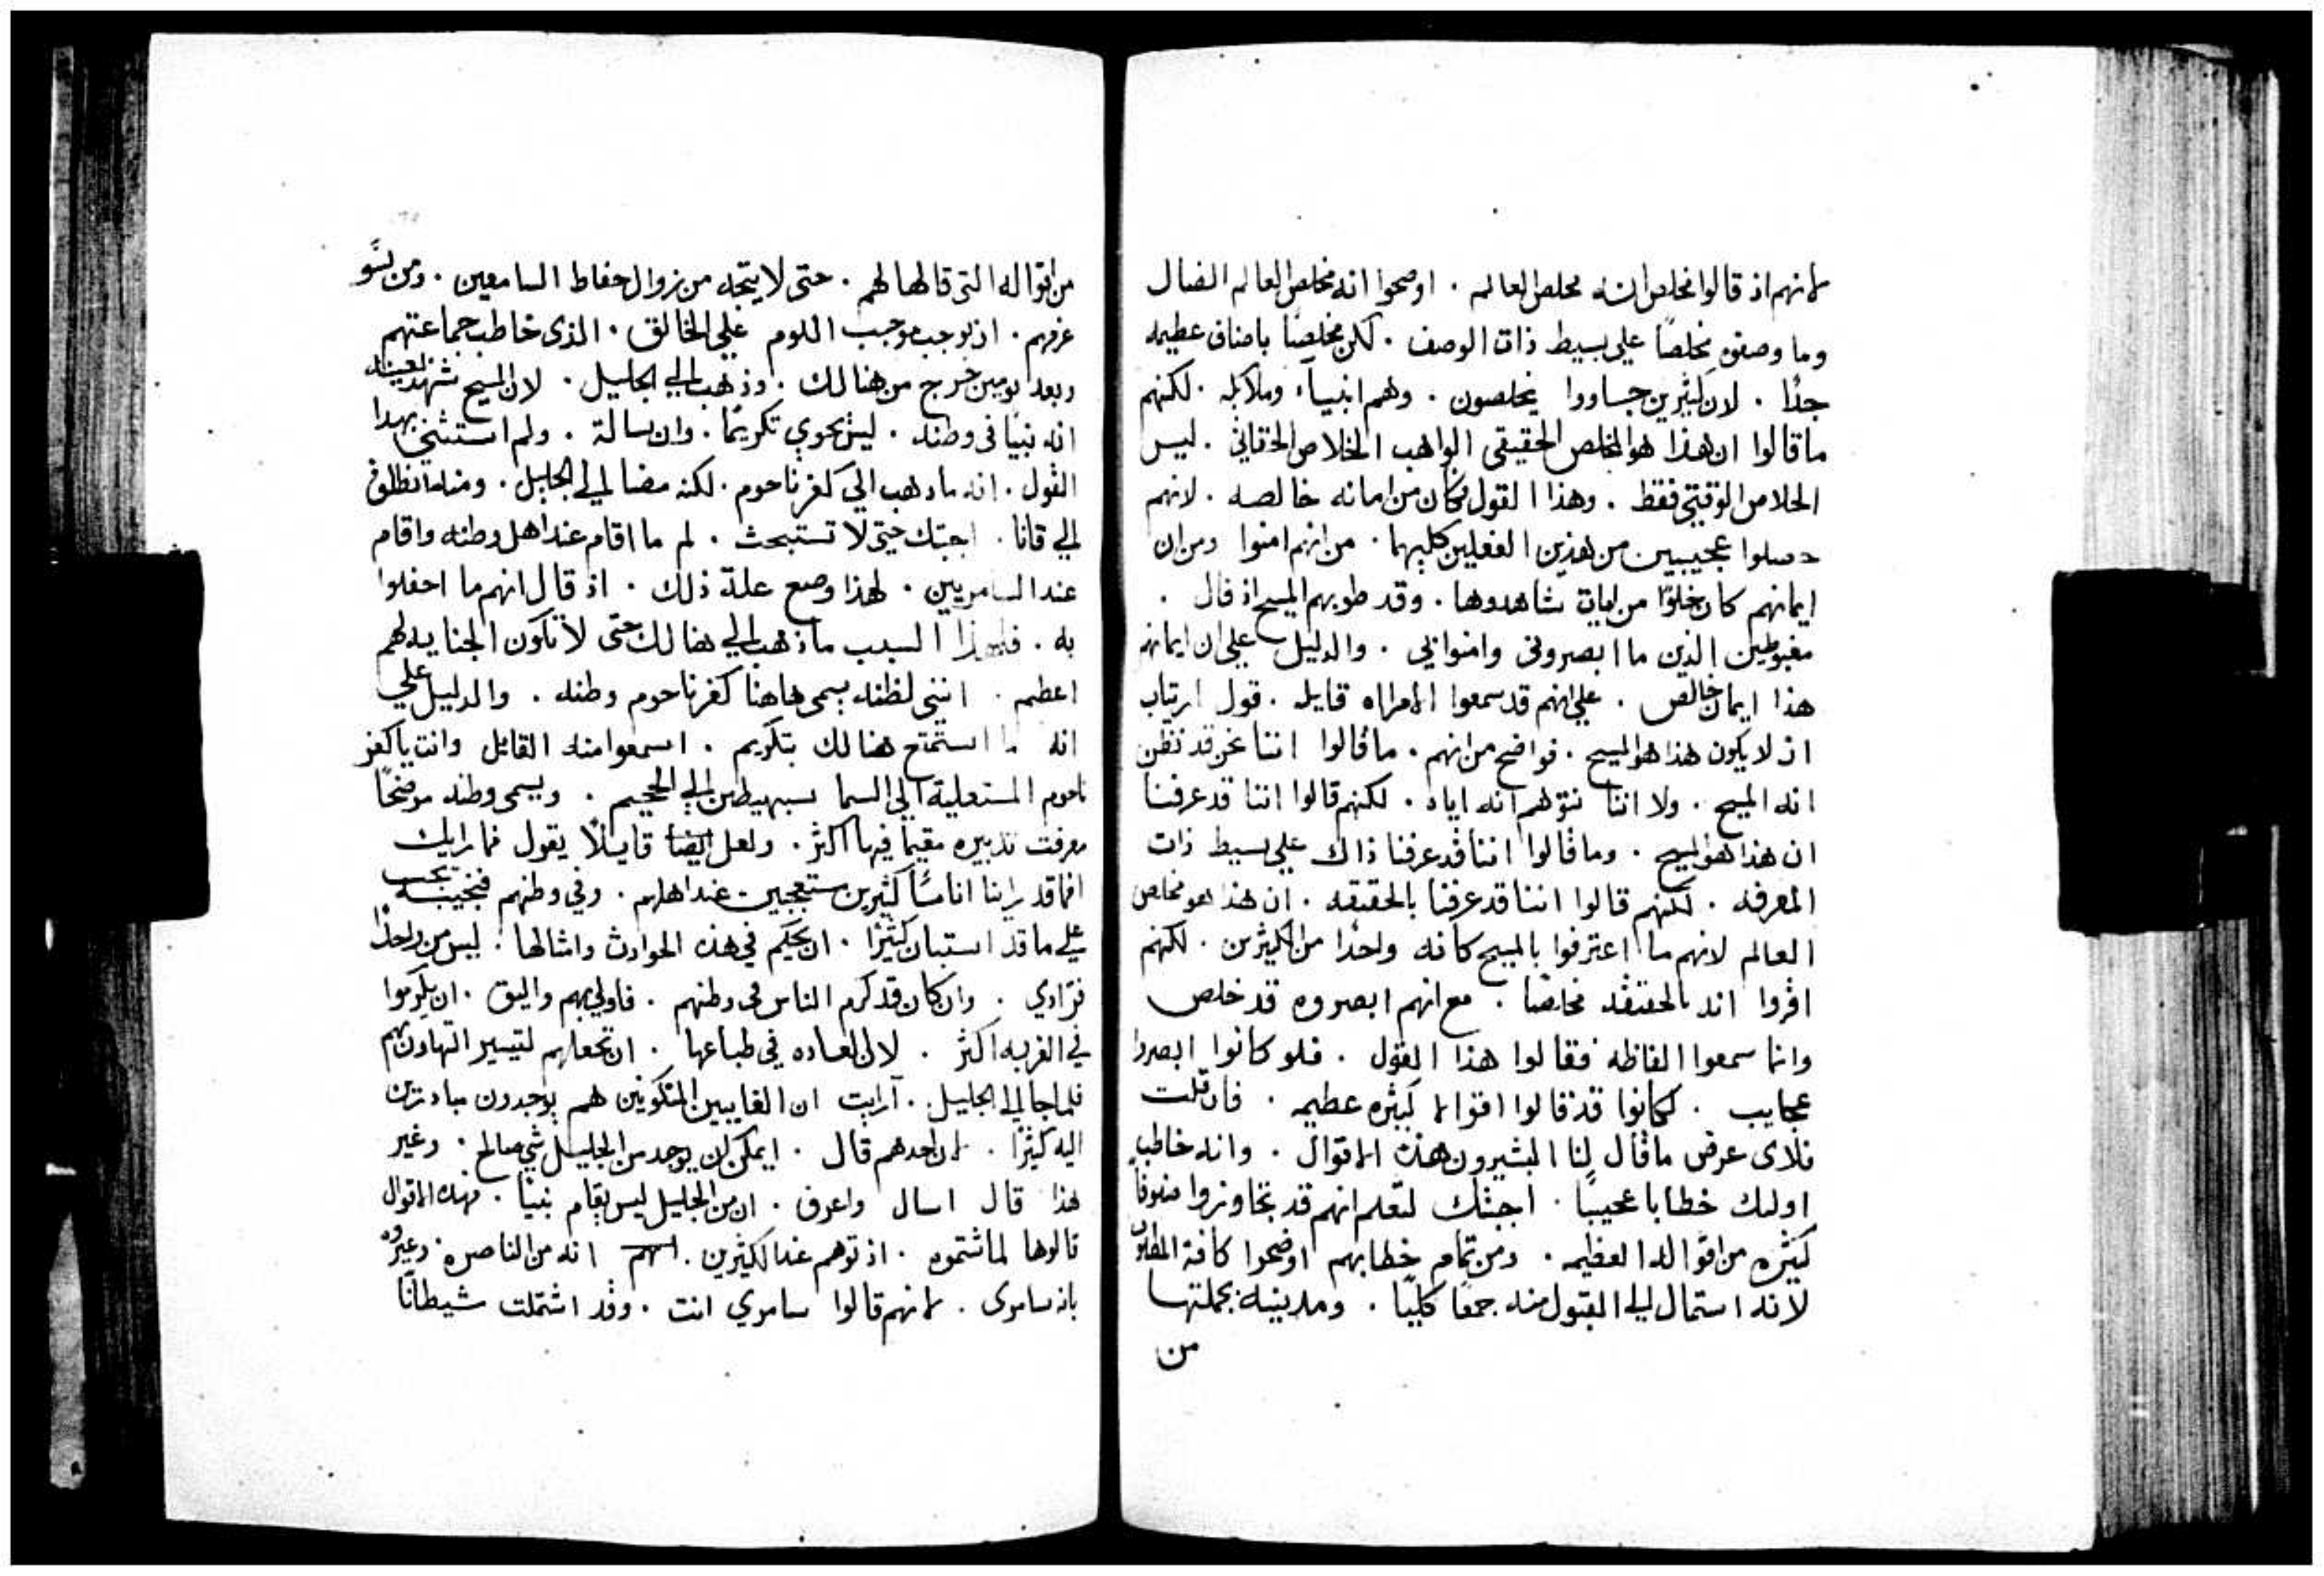 لانهم اذ قالوا مخلص انه مخلص العالم . اوضحوا انه مخلص العالم الضال
وما وصفوه مخلصًا علي بسيط ذات الوصف . لكن مخلصًا باصناف عظيمه
جدًا . لان كثيرين جاووا يخلصون . وهم انبيآء وملايكه . لكنهم
ما قالوا ان هذا هو المخلص الحقيقي الواهب الخلاص الحقاني . ليس
الخلاص الوقتي فقط . وهذا القول فكان من امانه خالصه . لانهم
حصلوا عجيبين من هذين الفعلين كليهما . من انهم امنوا ومن ان
ايمانهم كان خلوًا من ايات شاهدوها . وقد طوبهم المسيح اذ قال .
مغبوطين الذين ما ابصروني وامنوا بي . والدليل علي ان ايمانهم
هذا ايمان خالص . علي انهم قد سمعوا الامراه قايله . قول ارتياب
اذ لا يكون هذا هو المسيح . فواضح من انهم . ما قالوا اننا نحن قد نظن
انه المسيح . ولا اننا نتوهم انه اياه . لكنهم قالوا اننا قد عرفنا
ان هذا هو المسيح . وما قالوا اننا قد عرفنا ذاك علي بسيط ذات
المعرفه . لكنهم قالوا اننا قد عرفنا بالحقيقه . ان هذا هو مخلص
العالم لانهم ما اعترفوا بالمسيح كانه واحدًا من الكثيرين . لكنهم
اقروا انه بالحقيقه مخلصًا . مع انهم ابصروه قد خلص
وانما سمعوا الفاظه فقالوا هذا القول . فلو كانوا ابصروا
عجايب . لكانوا قد قالوا اقوالا كثيره عظيمه . فان قلت
فلاي عرض ما قال لنا البشيرون هذه الاقوال . وانه خاطب
اوليك خطابا عجيبًا . اجبتك لتعلم انهم قد تجاوزوا صنوفًا
كثيره من اقواله العظيمه . ومن تمام خطابهم اوضحوا كافة المطلوب
لانه استمال الي القبول منه جمعًا كليًا . ومدينيه بجملتها
من
من اقواله التي قالها لهم . حتي لا يتجه من زوال حفاظ السامعين . ومن
عزمهم . ان يوجب موجب اللوم علي الخالق . الذي خاطب جماعتهم
وبعد يومين خرج من هنالك . وذهب الي الجليل . لان المسيح شهد بعينه
انه نبيًا في وطنه . ليس يحوي تكريمًا . وان سالة . ولم استثني بهذا
القول . انه ما ذهب الي كفرناحوم . لكنه مضا الي الجليل . ومنها انطلق
الي قانا . اجبتك حتي لا تستبحث . لم ما اقام عند اهل وطنه واقام
عند السامريين . لهذا وضع علة ذلك . اذ قال انهم ما احفلوا
به . فلهذا السبب ما ذهب الي هنالك حتي لا تكون الجنايه لهم
اعظم . انني لظنه يسمي هاهنا كفرناحوم وطنه . والدليل علي
انه ما استمتع هنالك بتكريم . اسمعوا منه القائل وانت يا كفر
ناحوم المستعلية الي السما ستهبطين الي الجحيم . ويسمي وطنه موضحًا
معرفت تدبيره مقيمًا فيها اكثر . ولعل ايضا قايلًا يقول فما رايك
افما قد راينا اناسًا كثيرين ستعجبين عند اهلهم . وفي وطنهم فنجيبه يجب
علي ما قد استبان كثيرًا . ان نحكم في هذه الحوادث وامثالها . ليس من واحدًا
فرادي . وان كان قد كرم الناس في وطنهم . فاولي بهم واليق . ان يكرموا
في الغربه اكثر . لان العاده في طباعها . ان تجعلهم لتيسير التهاون بهم
فلما جا الي الجليل . آرايت ان الغايبين المنكوبين هم يوجدون مبادرين
اليه كثيرًا . لان احدهم قال . ايمكن ان يوجد من الجليل شي صالح . وغير
هذا قال اسال واعرف . ان من الجليل ليس يقام نبيًا . فهذه الاقوال
قالوها لما شتموه . اذ توهم عند الكثيرين . انه من الناصره . وعيروه
بانه سامري . لانهم قالوا سامري انت . وقد اشتملت شيطانًا